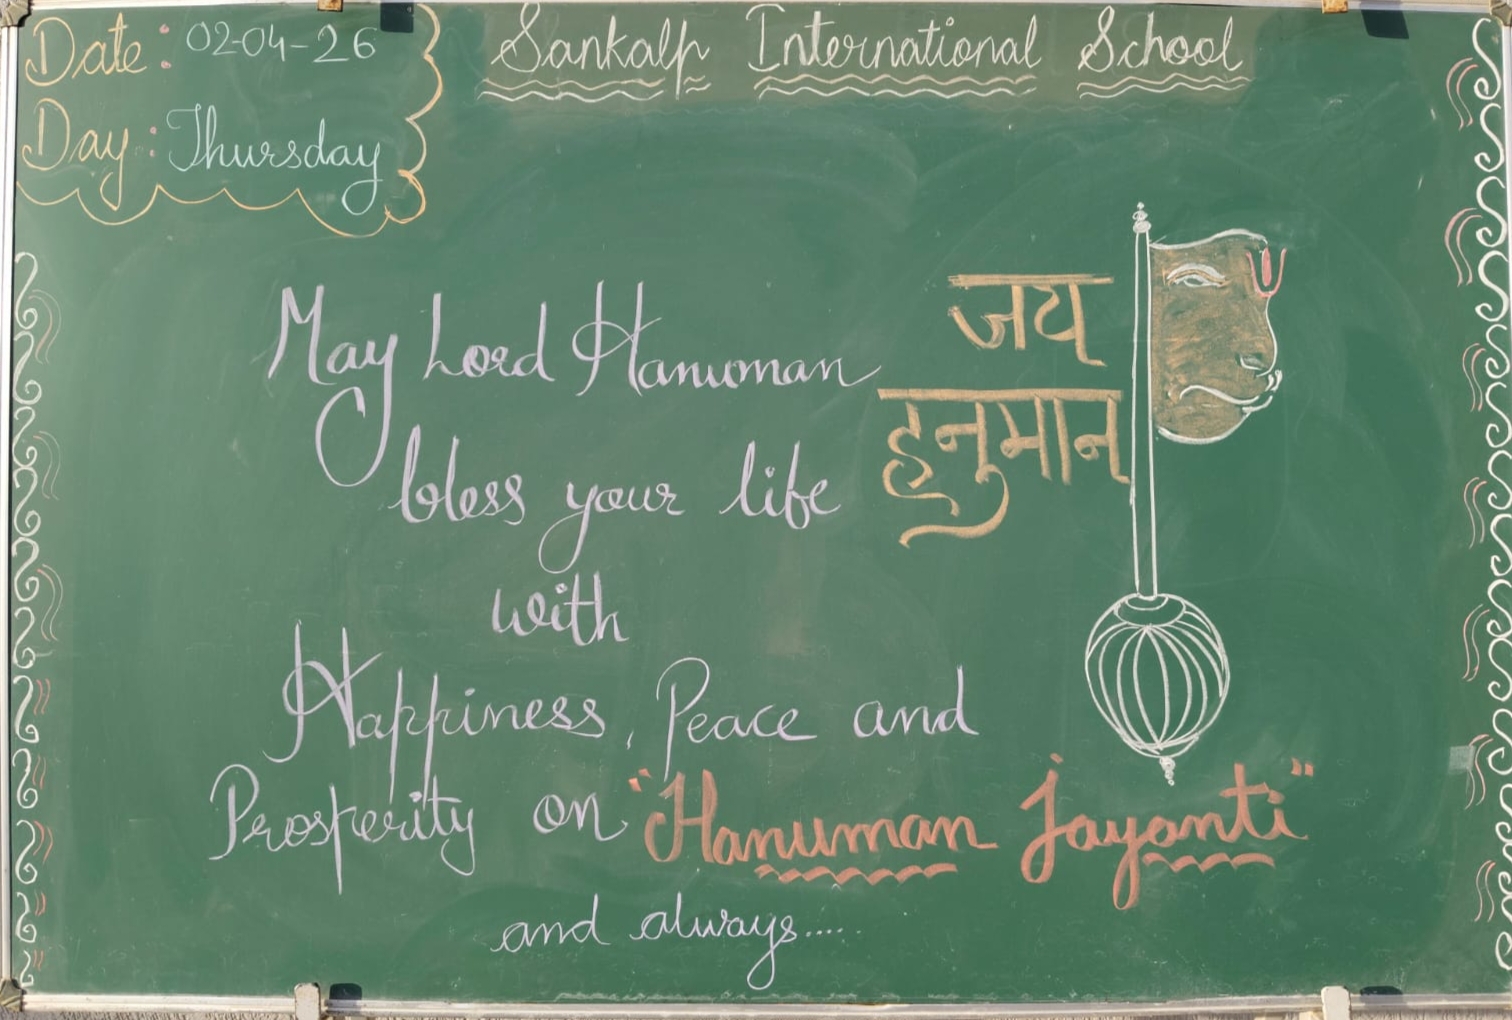 Date: 02-04-26
Sankalp International School
Day: Thursday
जय
हनुमान
May Lord Hanuman
bless your life
with
Happiness, Peace and
Prosperity on "Hanuman Jayanti"
and always....